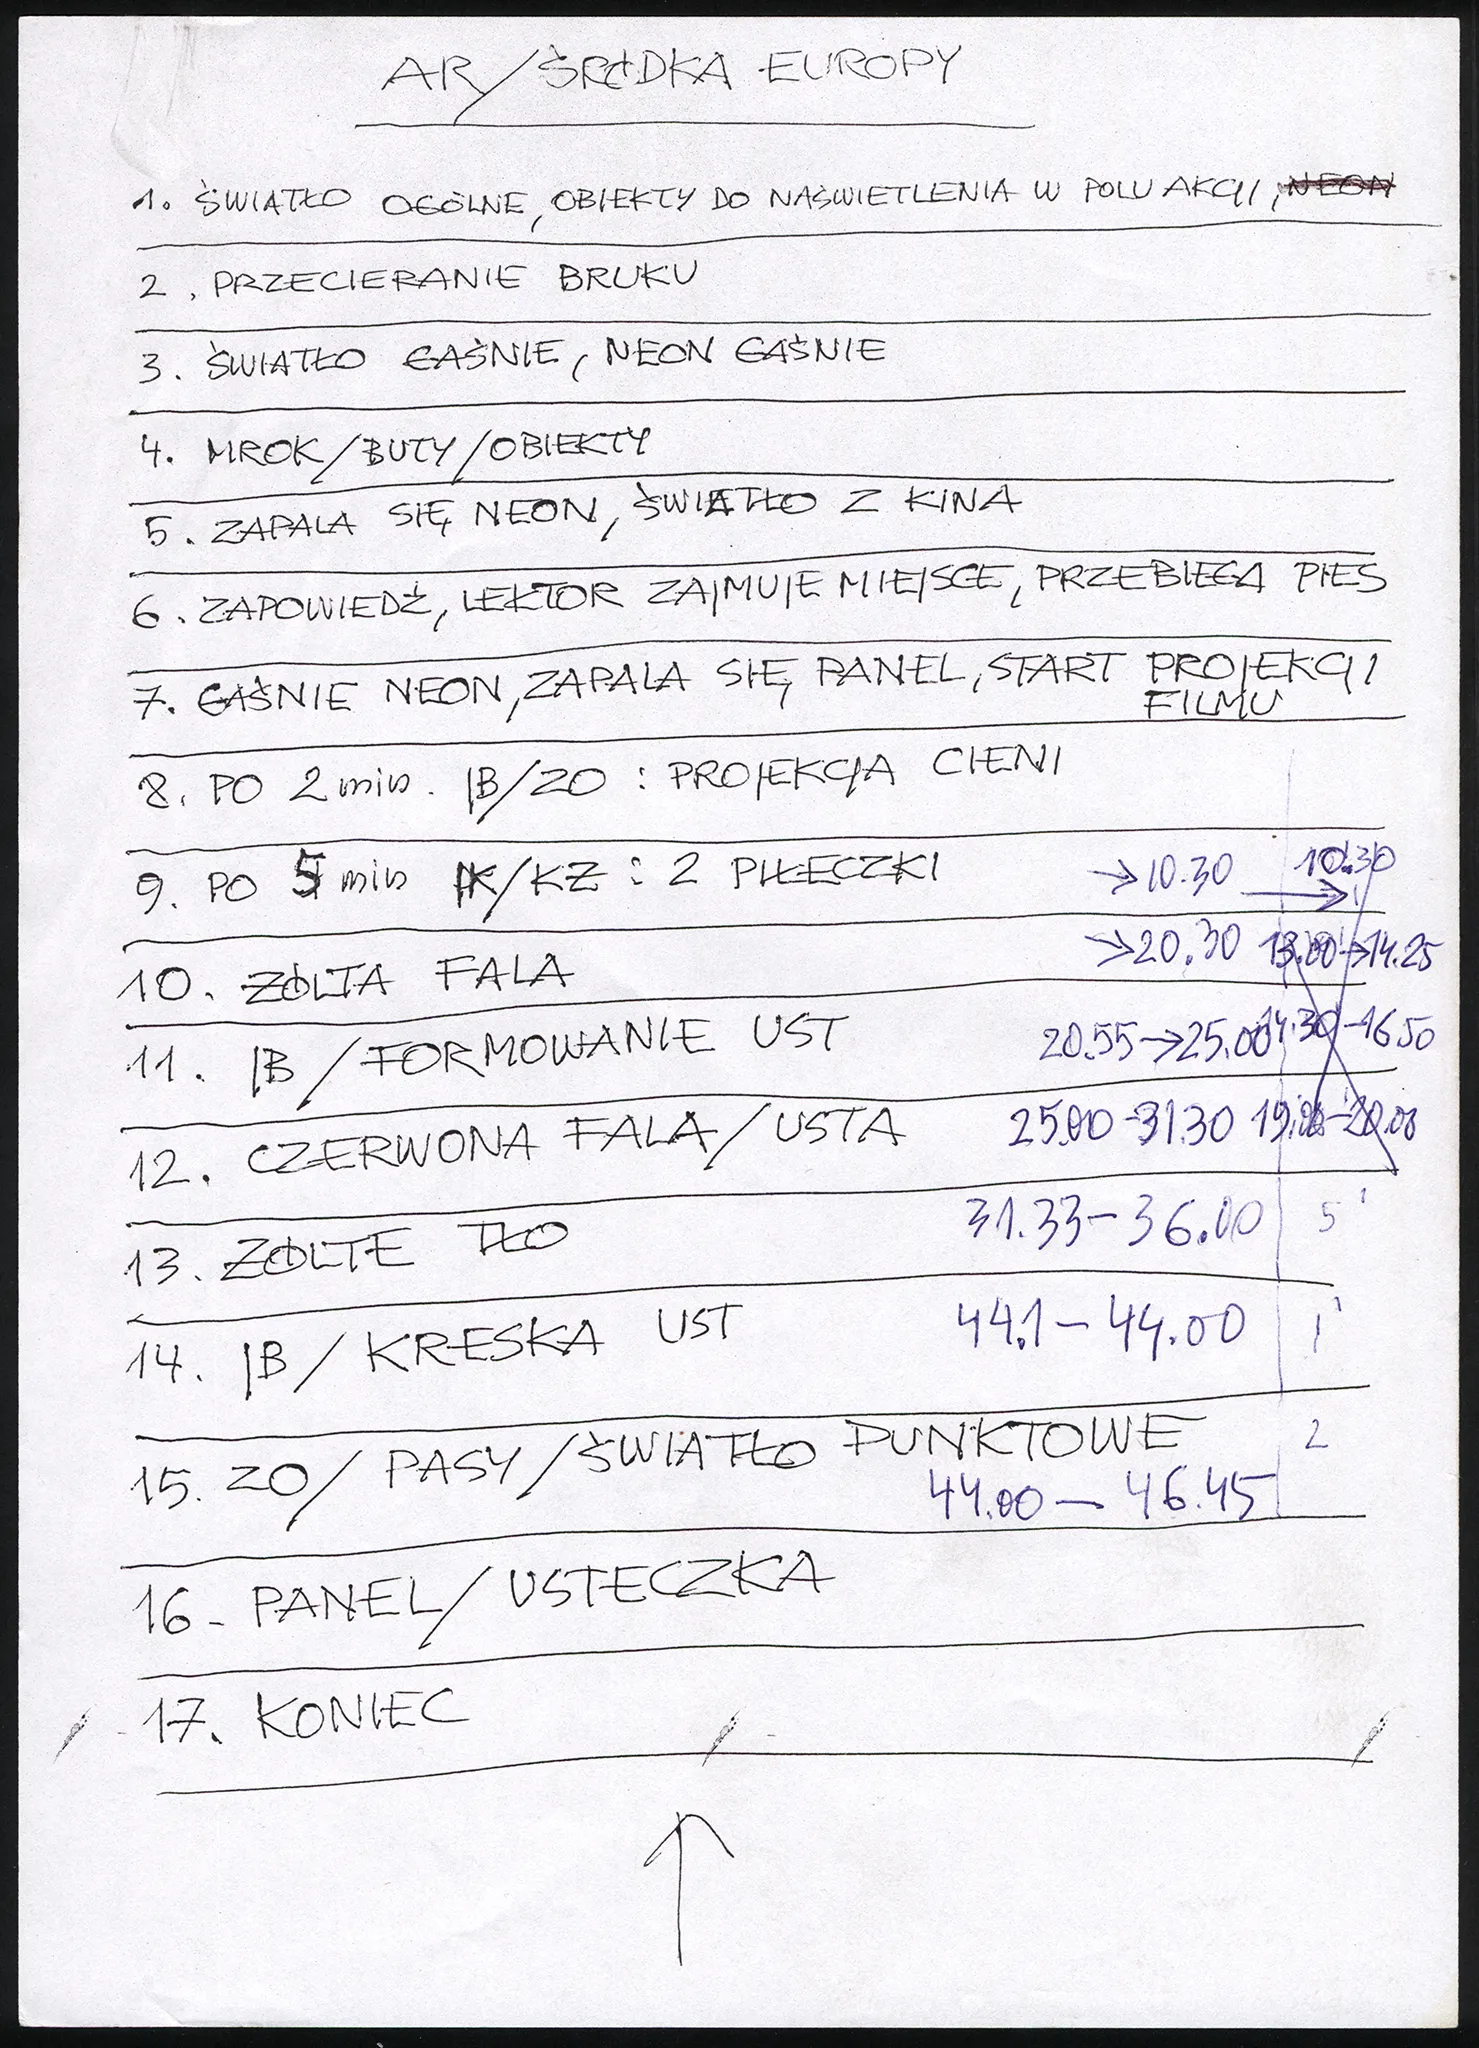 AR/ŚRÓDKA EUROPY
1. ŚWIATŁO OGÓLNE, OBIEKTY DO NAŚWIETLENIA W POLU AKCJI, NEON
2. PRZECIERANIE BRUKU
3. ŚWIATŁO GAŚNIE, NEON GAŚNIE
4. MROK/BUTY/OBIEKTY
5. ZAPALA SIĘ NEON, ŚWIATŁO Z KINA
6. ZAPOWIEDŹ, LEKTOR ZAJMUJE MIEJSCE, PRZEBIEGA PIES
7. GAŚNIE NEON, ZAPALA SIĘ PANEL, START PROJEKCJI
FILMU
8. PO 2 min. JB/ZO : PROJEKCJA CIENI
9. PO 5 min JK/KZ : 2 PIŁECZKI →10.30 → 10.30
10. ŻÓŁTA FALA →20.30 13.00→14.25
11. JB/FORMOWANIE UST 20.55→25.00 14.30-16.50
12. CZERWONA FALA/USTA 25.00-31.30
13. ŻÓŁTE TŁO 31.33-36.00 5'
14. JB/KRESKA UST 44.1-44.00 1'
15. ZO/PASY/ŚWIATŁO PUNKTOWE 2
44.00-46.45
16- PANEL/USTECZKA
17. KONIEC